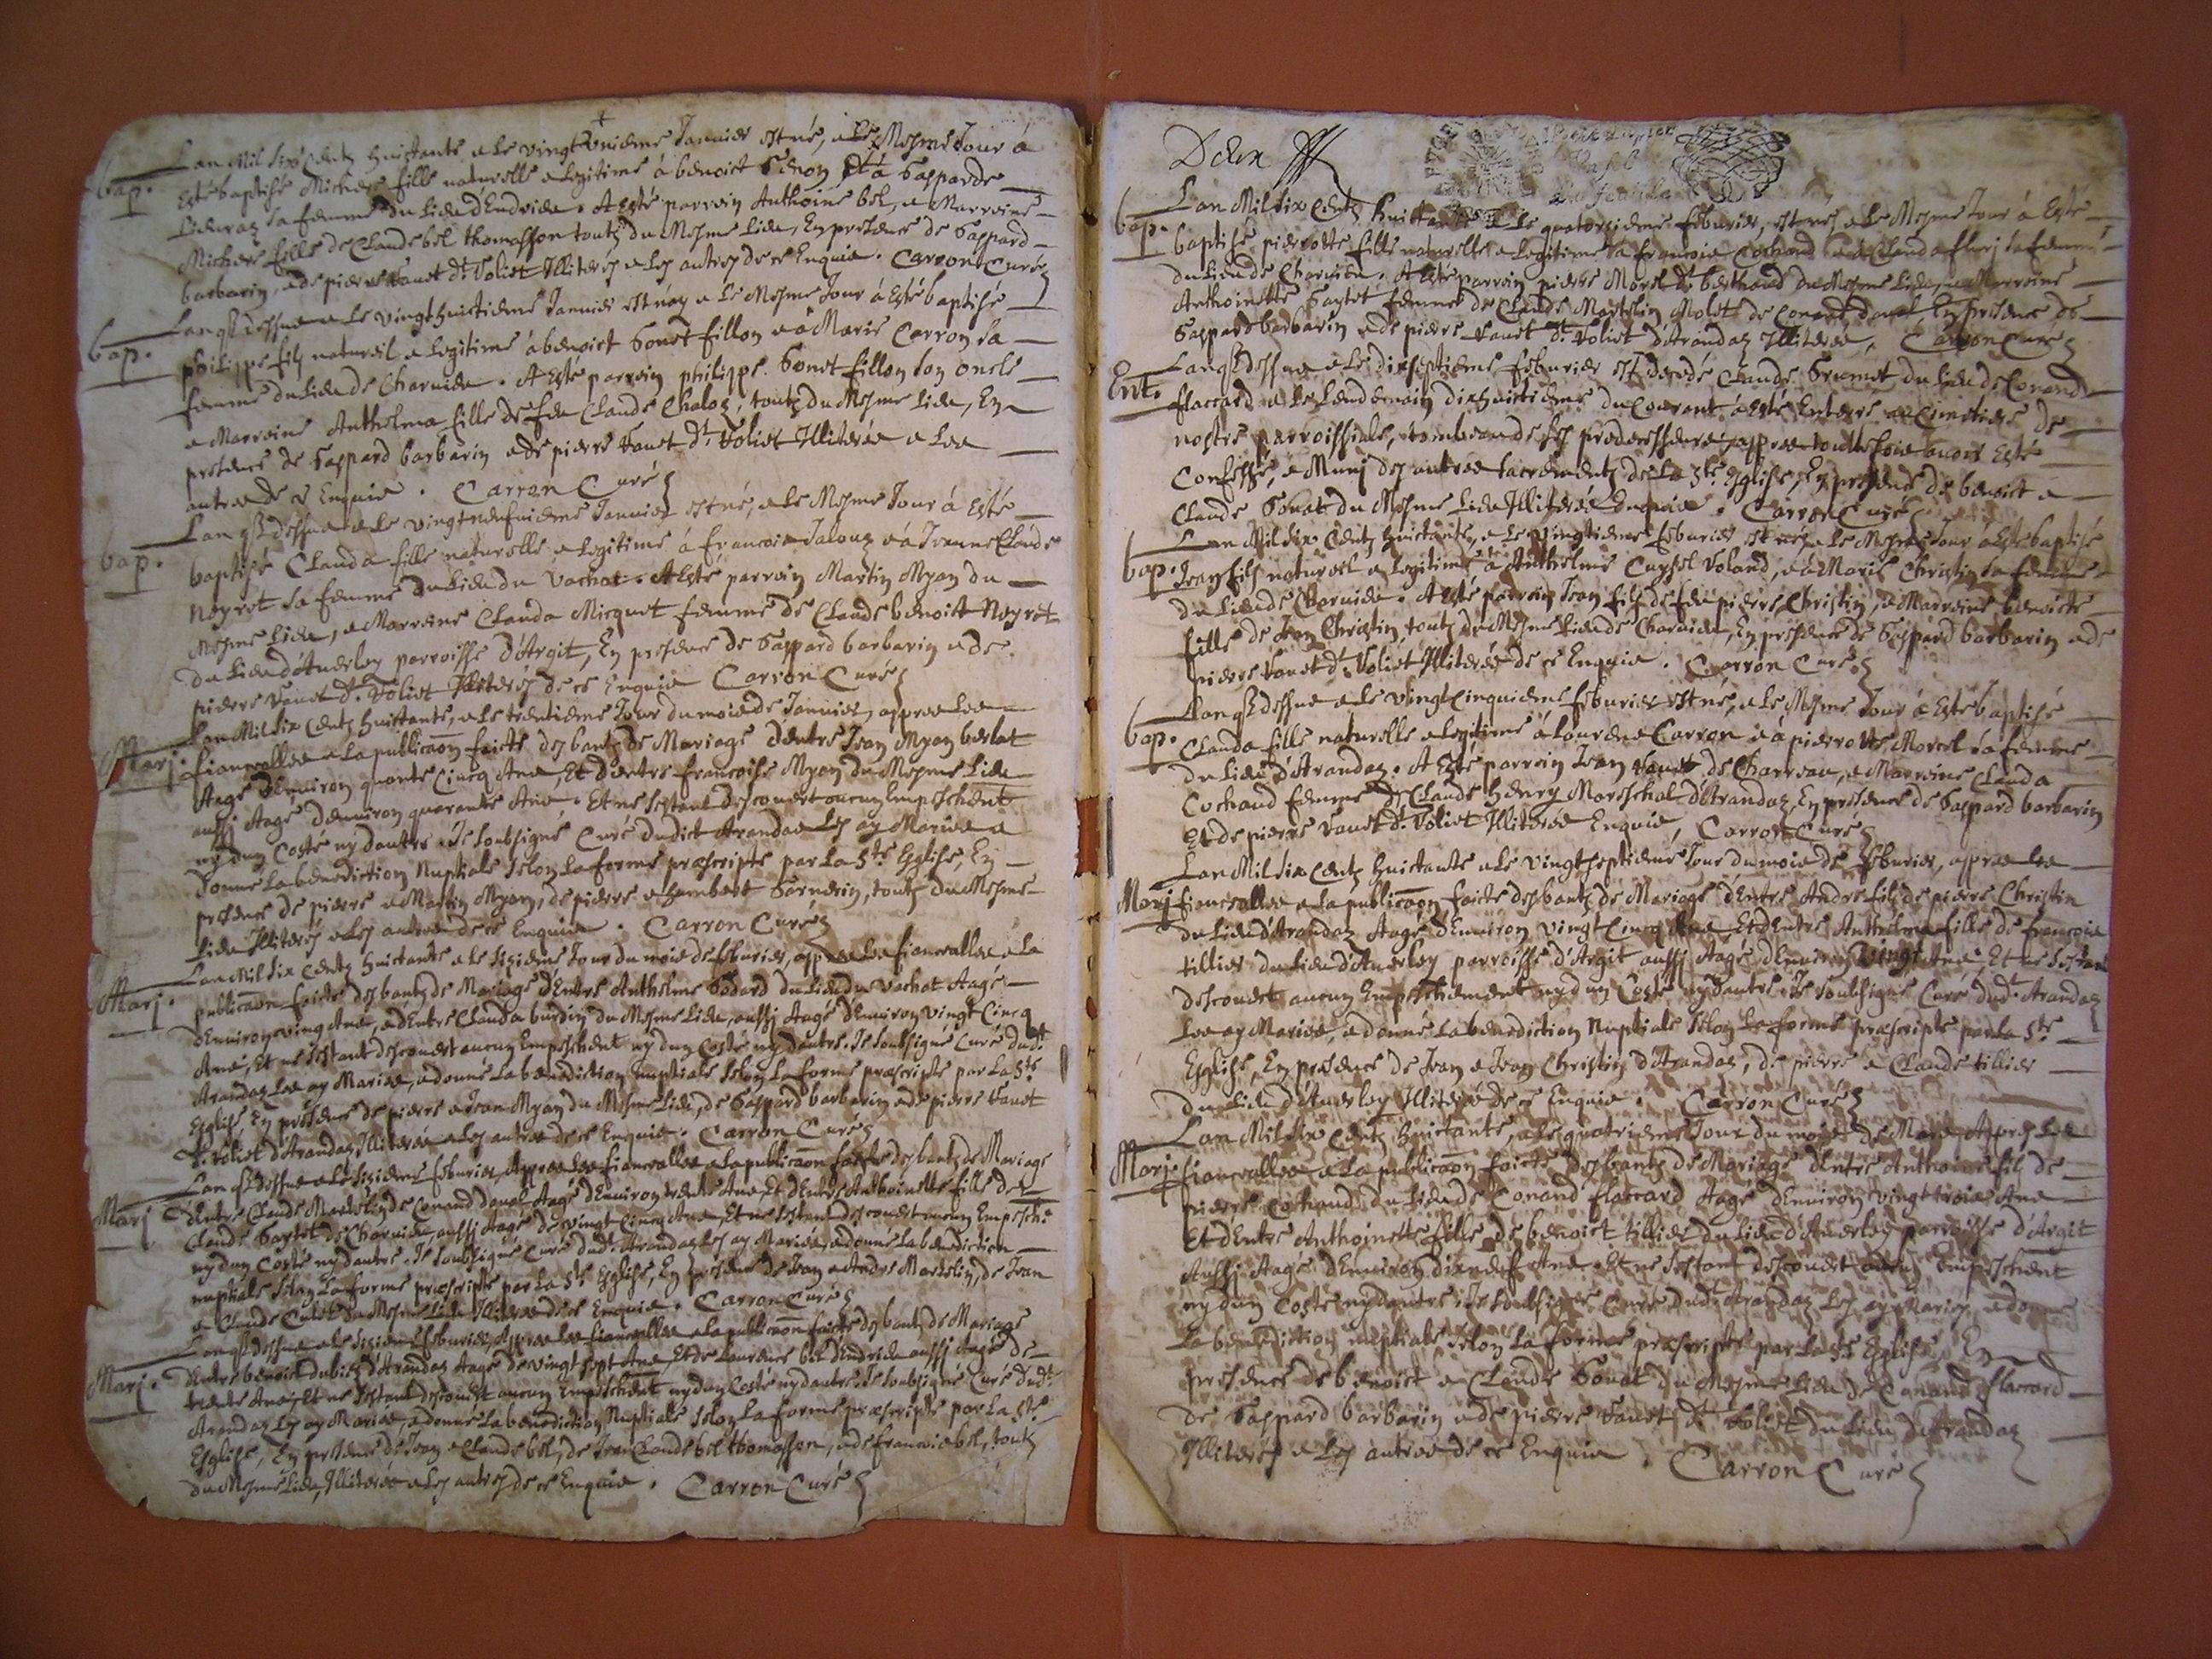 bap. Lan Mil six Centz huictante e le vingt uniesme Januier est né, e le Mesme Jour à
Esté baptisé Michere fille naturelle e legitime à benoict Senoy Et à Gasparde
sa femme du Lieu d'Endrieu. A Esté parrein Anthoine bel, e Marreine
Michere fille de Claude bel thomasson toutz du Mesme Lieu, En presence de Gaspard
barbarin, e de pierre Vanet dt. Voliet Illiterés e les autres de ce Enquis. Carron Curé
bap. Lan qs dessus e le vingt huictiesme Januier est néz e le Mesme Jour à Esté baptisé
philippe filz naturel e legitime à benoict Sonet fillon e à Marie Carron sa
femme du Lieu de Charuieu. A Esté parrein philippe Sonet fillon son oncle
e Marreine Anthelma fille de feu Claude Chaloz, toutz du Mesme Lieu, En
presence de Gaspard barbarin e de pierre Vanet dt. Voliet Illiterés e les
autres de ce Enquis. Carron Curé
bap. Lan qs dessus e le vingt neufuiesme Januier est né, e le Mesme Jour à Esté
baptisé Clauda fille naturelle e legitime à francois Jalouz e à Jeanne Claude
Neyret sa femme du Lieu du Vachat. A Esté parrein Martin Myan du
Mesme Lieu, e Marreine Clauda Micquet femme de Claude benoict Neyret
du Lieu d'Auerley parroisse d'Argit, En presence de Gaspard barbarin e de
pierre Vanet dt. Voliet Illiterés de ce Enquis Carron Curé
Marj. Lan Mil six Centz huictante, e le trentiesme Jour du mois de Januier, appres les
fiancialles e la publicaõn faicte des bantz de Mariage d'entre Jean Myan berlat
Aagé d'Enuiron quarante Cincq Ans, Et d'entre francoise Myan du Mesme Lieu
aussj Aagé d'enuiron quarante Ans. Et ne s'estant descouuert aucun Empeschent
ny d'un Costé ny d'autre. Je soubsigné Curé dudict Arandas les ay Mariés e
donné la benediction Nuptiale selon la forme prescripte par la Ste. Esglise, En
presence de pierre e Martin Myan, de pierre e humbert Garnerin, toutz du Mesme
Lieu Illiterés e les autres de ce Enquis. Carron Curé
Marj. Lan Mil six Centz huictante e le siziesme Jour du mois de feburier, appres les fiancialles e la
publicaõn faicte des bantz de Mariage d'Entre Anthelme Godard du Lieu du Vachat Aagé
d'Enuiron ving Ans, e d'Entre Clauda burdin du Mesme Lieu, aussj Aagé d'Enuiron vingt Cincq
Ans, Et ne s'estant descouuert aucun Empeschent ny d'un Costé ny d'autre. Je soubsigné Curé dudt.
Arandas les ay Mariés, e donné la benediction nuptiale selon la forme prescripte par la Ste.
Esglise, En presence de pierre e Jean Myan du Mesme Lieu, de Gaspard barbarin e de pierre Vanet
dt. Voliet d'Arandas Illiterés e les autres de ce Enquis. Carron Curé
Marj Lan qs dessus e le siziesme feburier, Appres les fiancialles e la publicaõn faicte des bantz de Mariage
d'Entre Claude Martelin de Conand Aagé d'Enuiron trente Ans, Et d'Entre Anthoinette fille de
Claude Gartet de Charuieu aussj Aagé de vingt Cincq Ans, Et ne s'estant descouuert aucun Empeschet
ny d'un Costé ny d'autre. Je soubsigné Curé dudt. Arandas les ay Mariés, e donné la benediction
nuptiale selon la forme prescripte par la Ste. Esglise, En presence de Jean e André Martelin, de Jean
e Claude Culet du Mesme Lieu Illiterés de ce Enquis. Carron Curé
Marj. Lan qs dessus e le siziesme feburier, Appres les fiancialles e la publicaõn faicte des bantz de Mariage
d'Entre benoict dubiez d'Arandas Aagé de vingt sept Ans, Et de Laurence bel d'Endrieu aussj Aagé de
trente Ans, Et ne s'estant descouuert aucun Empeschent ny d'un Costé ny d'autre. Je soubsigné Curé dudt.
Arandas les ay Mariés, e donné la benediction Nuptiale selon la forme prescripte par la Ste.
Esglise, En presence de Jean e Claude bel, de Jean Claude bel thomasson, e de francois bel, toutz
du Mesme Lieu, Illiterés e les autres de ce Enquis. Carron Curé
Deux
bap. Lan Mil six Centz huictante e le quatorsiesme feburier, est né, e le Mesme Jour à Esté
baptisé pierrotte fille naturelle e legitime à francois Cochand e à Clauda flurj sa femme
du Lieu de Charuieu. A Esté parrein pierre Morel dt. berthaud du Mesme Lieu, e Marreine
Anthoinette Gartet femme de Claude Martelin Molet de Conand En presence de
Gaspard barbarin e de pierre Vanet dt. Voliet d'Arandas Illiterés, Carron Curé
Ent. Lan qs dessus e le dixseptiesme feburier est decedé Claude Grumet du Lieu de Conand
flaccard e le Lendemain dixhuictiesme du Courant à Esté Enterré au Cimetiere de
nostre parroissiale, e tombeau de ses predecesseurs, appres toutesfois auoir Esté
Confessé, e Munj des autres sacrementz de La Ste. Esglise, En presence de benoict e
Claude Sonat du Mesme Lieu Illiterés Enquis. Carron Curé
bap. Lan Mil six Centz huictante, e le vingtiesme feburier est né, e le Mesme Jour a Esté baptisé
Jean fils naturel e legitime à Anthelme Cuysel Voland, e à Marie Christin sa femme
du Lieu de Charuieu. A Esté parrein Jean fils de feu pierre Christin, e Marreine benoicte
fille de Jean Christin, toutz du Mesme Lieu de Charuieu, En presence de Gaspard barbarin e de
pierre Vanet dt. Voliet Illiterés de ce Enquis. Carron Curé
bap. Lan qs dessus e le vingt Cinquiesme feburier est né, e le Mesme Jour à Esté baptisé
Clauda fille naturelle e legitime à Laurens Carron e à pierrotte Morel sa femme
du Lieu d'Arandas. A Esté parrein Jean Vanet de Charreau, e Marreine Clauda
Cochaud femme de Claude henry Mareschal d'Arandas, En presence de Gaspard barbarin
Et de pierre Vanet dt. Voliet Illiterés Enquis, Carron Curé
Marj Lan Mil six Centz huictante e le vingt septiesme Jour du mois de feburier, appres les
fiancialles e la publicaõn faicte des bantz de Mariage d'Entre André fils de pierre Christin
du Lieu d'Arandas Aagé d'Enuiron vingt Cincq Ans, Et d'Entre Anthelma fille de francois
tillier du Lieu d'Auerley parroisse d'Argit aussj Aagé d'Enuiron vingt Ans, Et ne s'estant
descouuert aucun Empeschement ny d'un Costé ny d'autre. Je soubsigné Curé dudt. Arandas
les ay Mariés, e donné la benediction Nuptiale selon la forme prescripte par la Ste.
Esglise, En presence de Jean e Jean Christin d'Arandas, de pierre e Claude tillier
du Lieu d'Auerley Illiterés de ce Enquis. Carron Curé
Marj. Lan Mil six Centz huictante, e le quatriesme Jour du mois de Mars Appres les
fiancialles e la publicaõn faicte des bantz de Mariage d'Entre Anthoine fils de
pierre Cochand du Lieu de Conand flaccard Aagé d'Enuiron vingt trois Ans
Et d'Entre Anthoinette fille de benoict tillier du Lieu d'Auerley parroisse d'Argit
Aussj Aagé d'Enuiron dixneuf Ans. Et ne s'estant descouuert aucun Empeschent
ny d'un Costé ny d'autre. Je soubsigné Curé dudt. Arandas les ay Mariés, e donné
La benediction nuptiale selon la forme prescripte par la Ste. Esglise, En
presence de benoict e Claude Sonat du Mesme Lieu de Conand flaccard
de Gaspard barbarin e de pierre Vanet dt. Voliet du Lieu d'Arandas
Illiterés e les autres de ce Enquis. Carron Curé